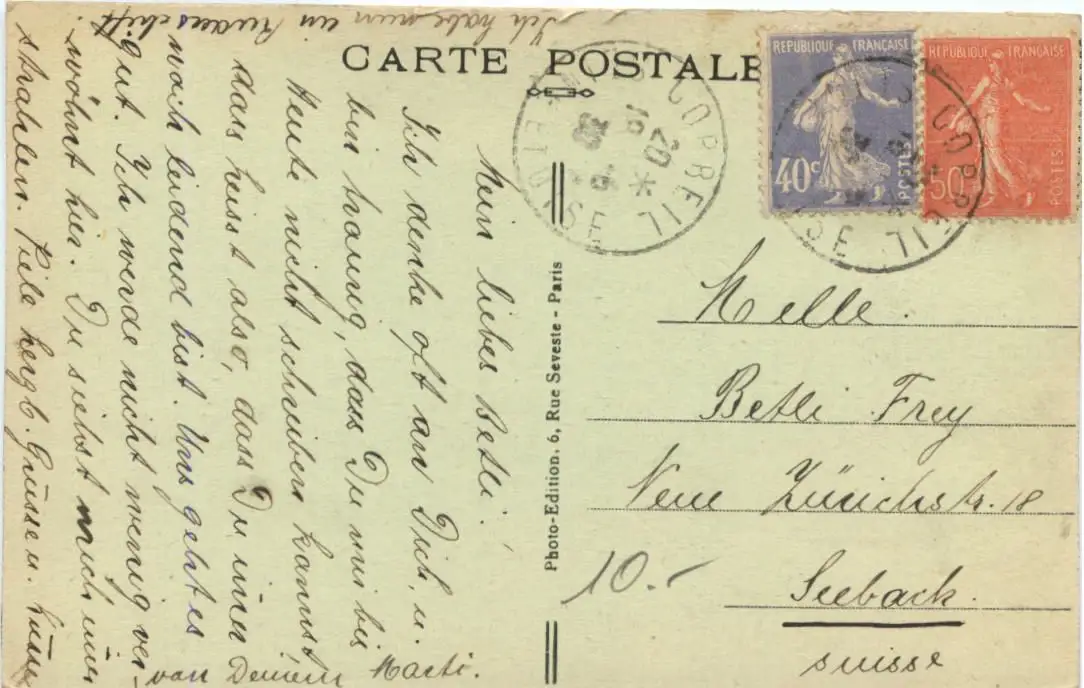 CARTE POSTALE
RÉPUBLIQUE FRANÇAISE
40c
POSTES
RÉPUBLIQUE FRANÇAISE
50c
POSTES
CORBEIL
20 *
Sne & OISE
CORBEIL
OISE
Mein liebes Betli!
Ich denke oft an Dich, u.
bin traurig, dass Du mir bis
Heute nicht schreiben kannst
dass heisst also, dass Du immer
noch leidend bist. Uns geht es
gut. Ich werde nicht wenig ver-
wöhnt hier. Du siehst mich immer
strahlen. Viele herzl. Grüsse u. Küsse
von Deinem Marti.
Ich habe nun ein
Photo-Edition, 6, Rue Seveste - Paris
Melle.
Betli Frey
Neue Zürichstr. 18
Seebach.
suisse
10.-